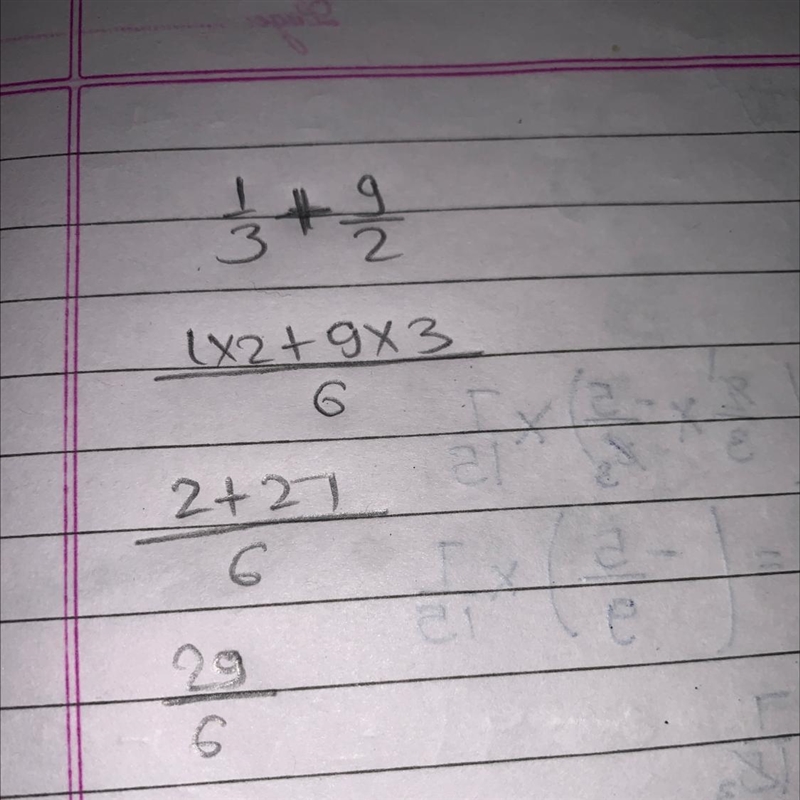 1/3 + 9/2
(1×2 + 9×3)/6
(2+27)/6
29/6